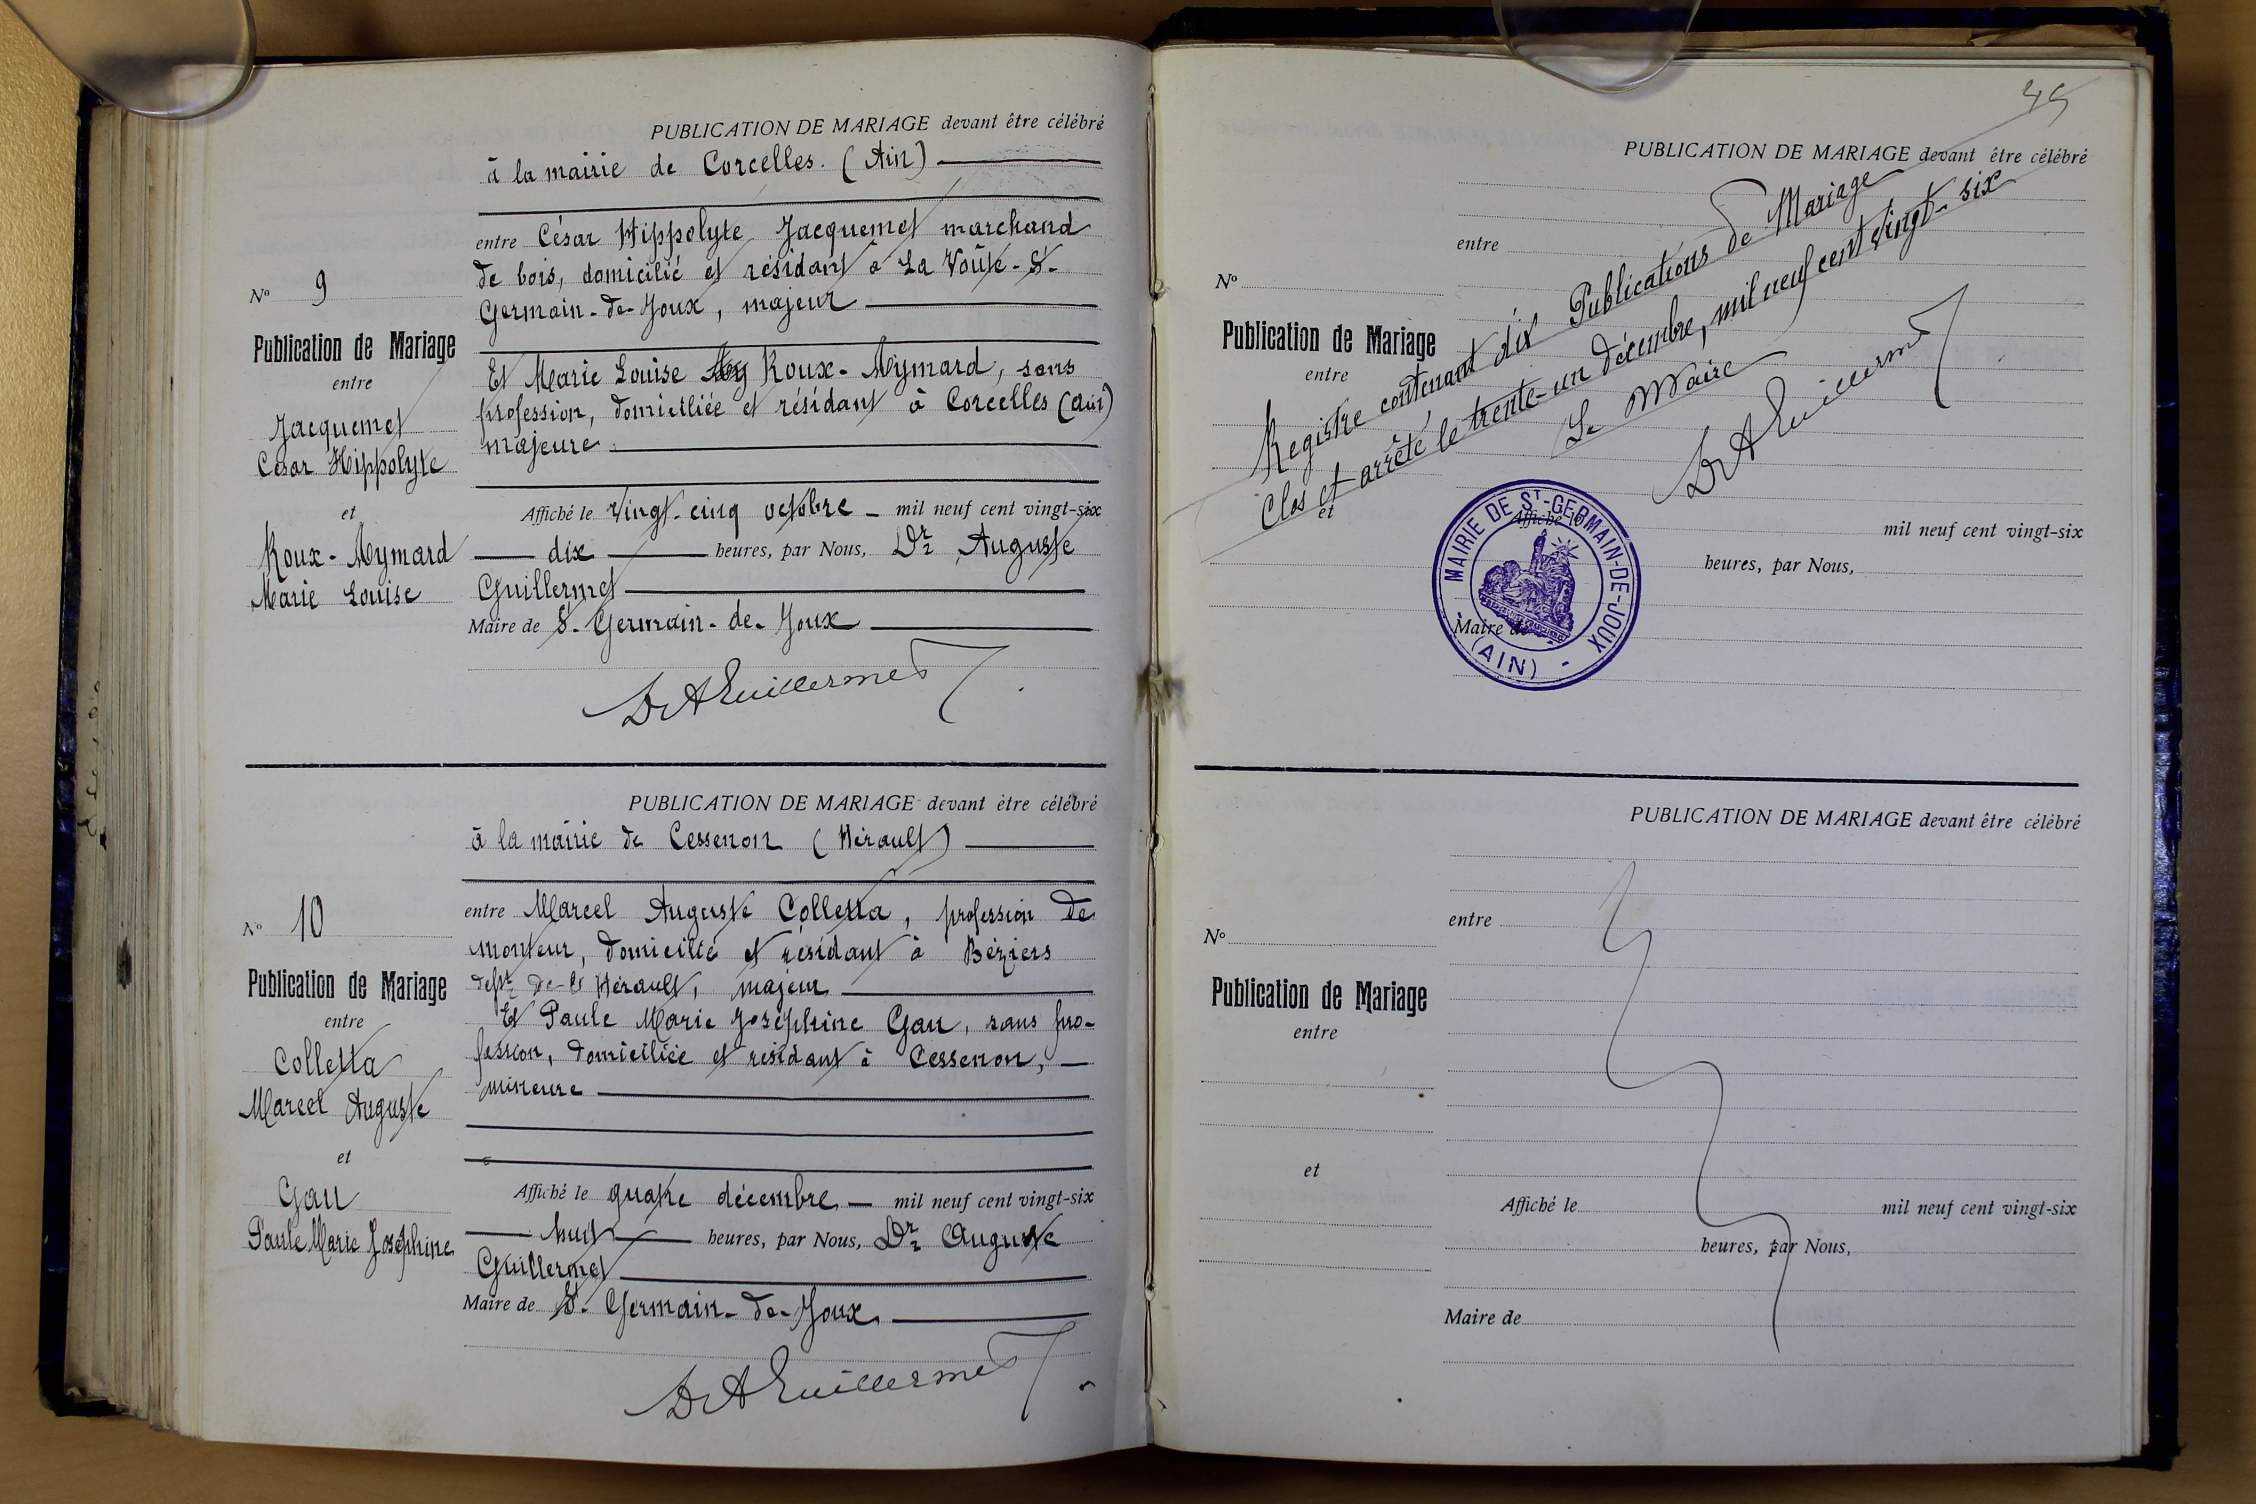 PUBLICATION DE MARIAGE devant être célébré
à la mairie de Corcelles. (Ain)
entre César Hippolyte Jacquemet marchand
de bois, domicilié et résidant à La Voûte-St-
Germain-de-Joux, majeur
Et Marie Louise Roux-Aymard, sans
profession, domicilliée et résidant à Corcelles (ain)
majeure.
Affiché le vingt-cinq octobre - mil neuf cent vingt-six
dix heures, par Nous, Dr Auguste
Guillermet
Maire de St-Germain-de-Joux
Dr A Guillermet
No 9
Publication de Mariage
entre
Jacquemet
César Hippolyte
et
Roux-Aymard
Marie Louise
PUBLICATION DE MARIAGE devant être célébré
à la mairie de Cessenon (Hérault)
entre Marcel Auguste Colletta, profession de
monteur, domicilié et résidant à Béziers
dept de l'Hérault, majeur
Et Paule Marie Joséphine Gau, sans pro-
fession, domiciliée et résidant à Cessenon, -
mineure
Affiché le quatre décembre - mil neuf cent vingt-six
huit heures, par Nous, Dr Auguste
Guillermet
Maire de St-Germain-de-Joux
Dr A Guillermet
No 10
Publication de Mariage
entre
Colletta
Marcel Auguste
et
Gau
Paule Marie Joséphine
PUBLICATION DE MARIAGE devant être célébré
entre
No
Publication de Mariage
entre
et
Registre contenant dix Publications de Mariage
Clos et arrêté le trente-un décembre, mil neuf cent vingt-six
Le Maire
Dr A Guillermet
MAIRIE DE ST-GERMAIN-DE-JOUX
- (AIN) -
Affiché le mil neuf cent vingt-six
heures, par Nous,
Maire de
PUBLICATION DE MARIAGE devant être célébré
entre
No
Publication de Mariage
entre
et
Affiché le mil neuf cent vingt-six
heures, par Nous,
Maire de